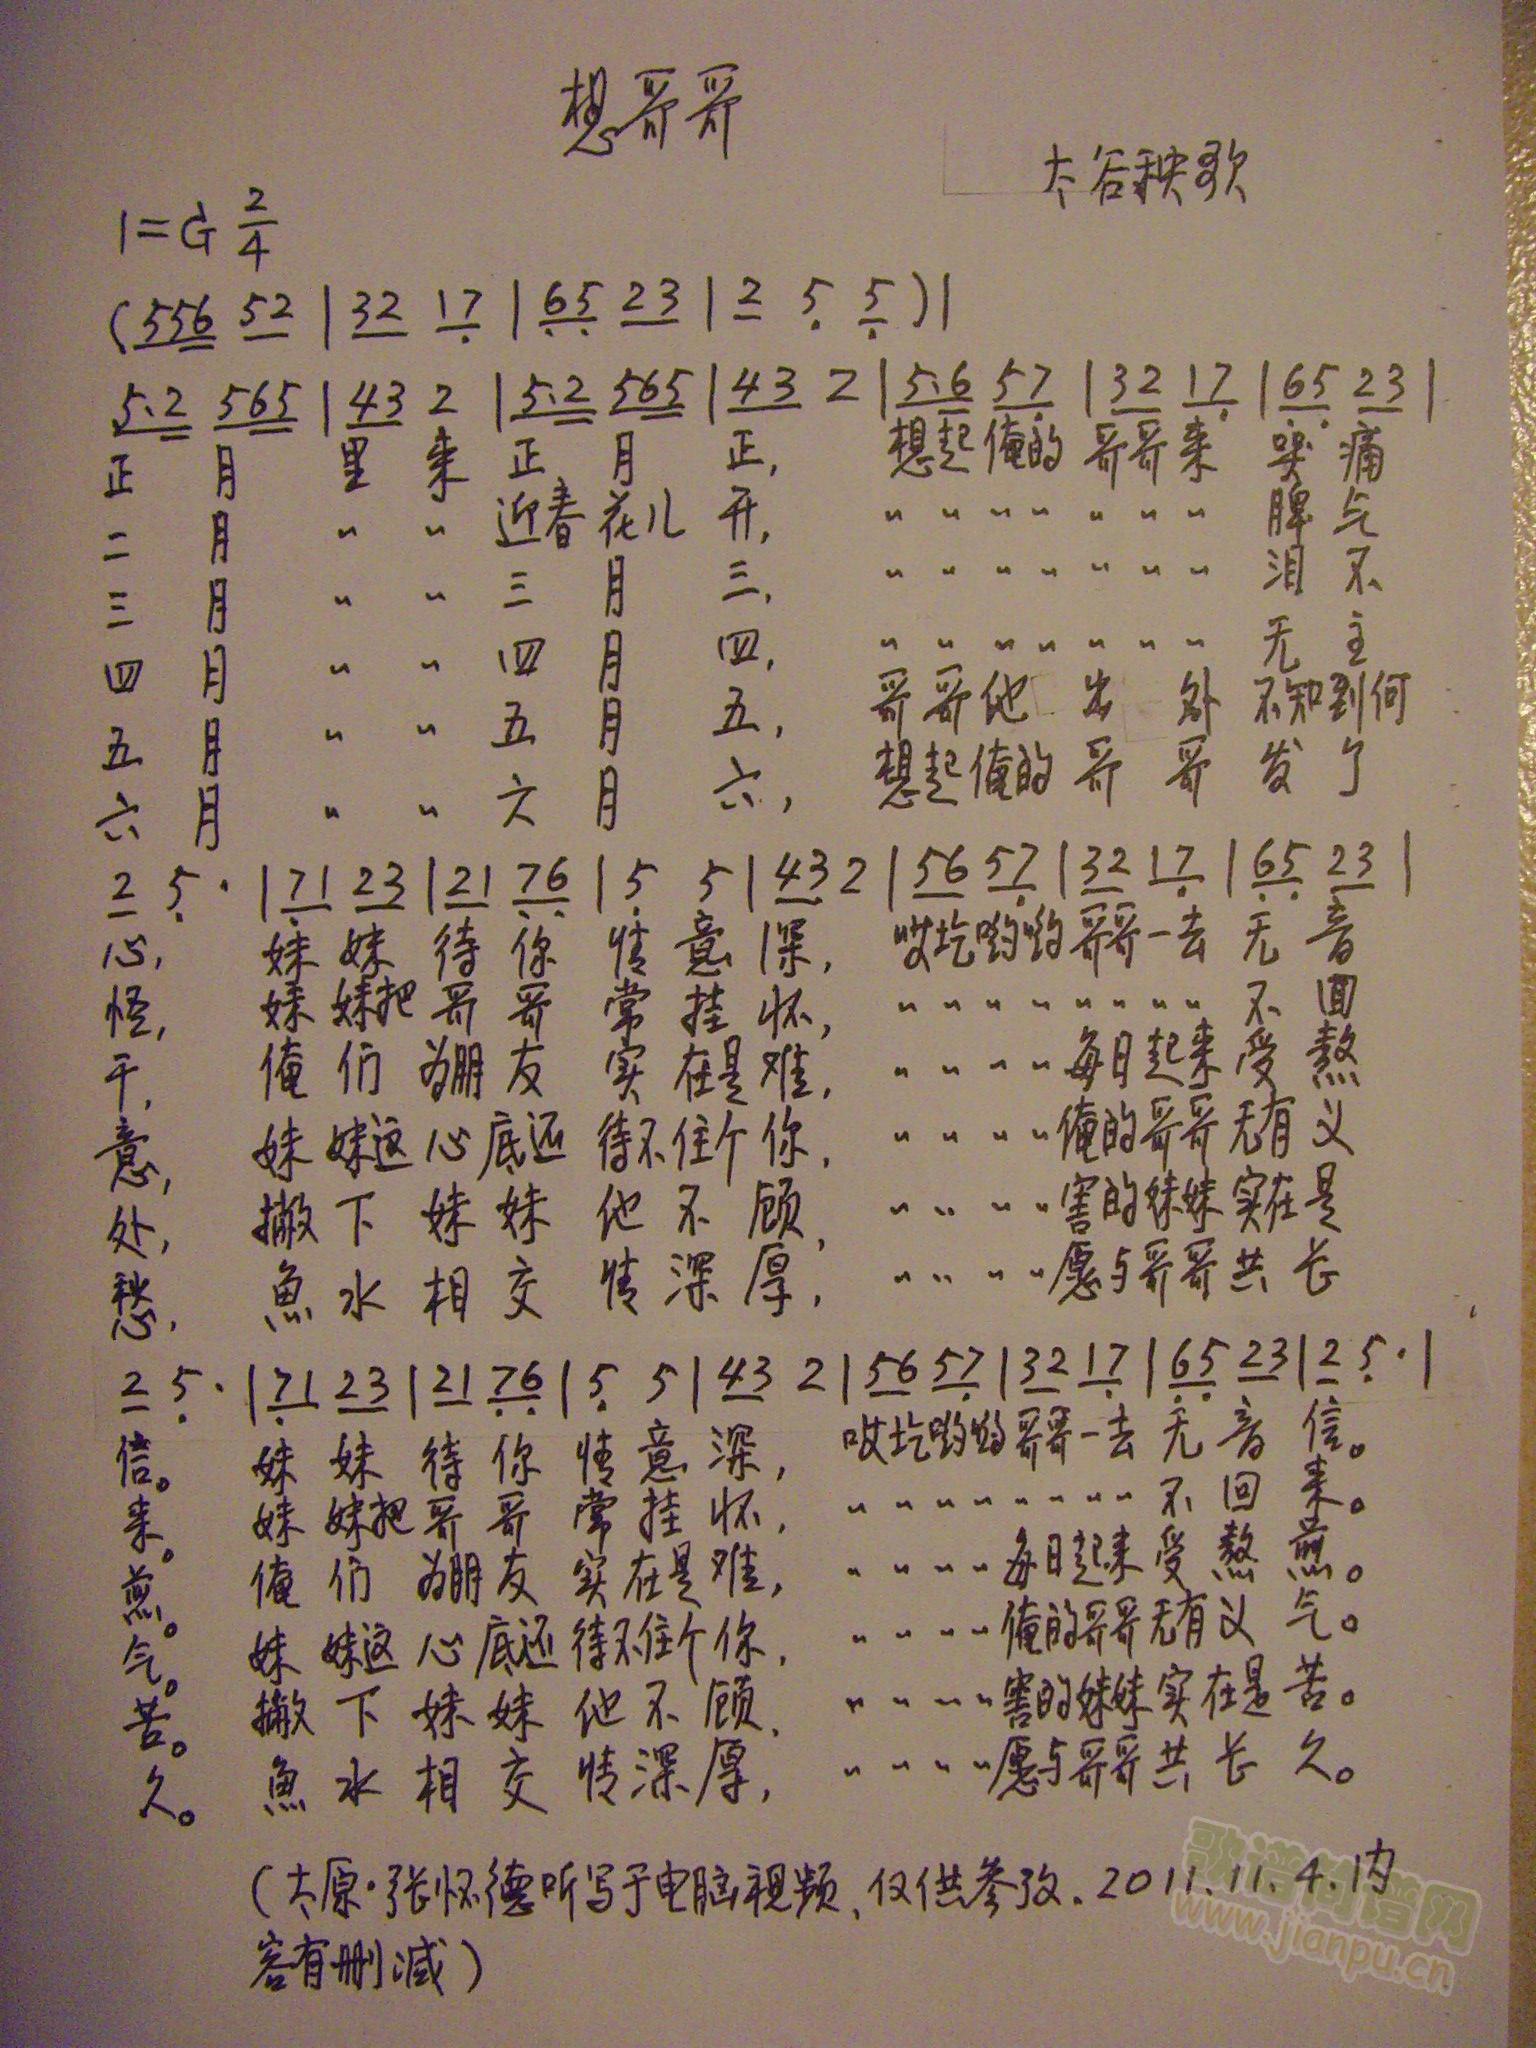 想哥哥
太谷秧歌
1=G 2/4
(556 52 | 32 17 | 65 23 | 2 5 5 )|
5.2 565 | 43 2 | 5.2 565 | 43 2 | 5.6 57 | 32 17 | 65 23 |
正 月 里 来 正 月 正, 想起俺的 哥哥来 哭 痛
二 月 〃 〃 迎春 花儿 开, 〃 〃 〃 〃 〃 〃 〃 脾 气
三 月 〃 〃 三 月 三, 〃 〃 〃 〃 〃 〃 〃 泪 不
四 月 〃 〃 四 月 四, 〃 〃 〃 〃 〃 〃 〃 无 主
五 月 〃 〃 五 月 五, 哥哥他 出 外 不知到何
六 月 〃 〃 六 月 六, 想起俺的 哥 哥 发 了
2 5· | 71 23 | 21 76 | 5 5 | 43 2 | 56 57 | 32 17 | 65 23 |
心, 妹 妹 待 你 情 意 深, 哎圪哟哟 哥哥一去 无 音
怪, 妹 妹把 哥 哥 常 挂 怀, 〃 〃 〃 〃 〃 〃 〃 〃 不 回
干, 俺 们 为朋 友 实 在是 难, 〃 〃 〃 〃 每日起来 受 熬
意, 妹 妹这 心 底还 待不 住个 你, 〃 〃 〃 〃 俺的哥哥 无有 义
处, 撇 下 妹 妹 他 不 顾, 〃 〃 〃 〃 害的妹妹 实在 是
愁, 魚 水 相 交 情 深 厚, 〃 〃 〃 〃 愿与哥哥 共 长
2 5· | 71 23 | 21 76 | 5 5 | 43 2 | 56 57 | 32 17 | 65 23 | 2 5· |
信。 妹 妹 待 你 情 意 深, 哎圪哟哟 哥哥一去 无 音 信。
来。 妹 妹把 哥 哥 常 挂 怀, 〃 〃 〃 〃 〃 〃 〃 〃 不 回 来。
煎。 俺 们 为朋 友 实 在是 难, 〃 〃 〃 〃 每日起来 受 熬 煎。
气。 妹 妹这 心 底还 待不住个 你, 〃 〃 〃 〃 俺的哥哥 无有 义 气。
苦。 撇 下 妹 妹 他 不 顾, 〃 〃 〃 〃 害的妹妹 实 在是 苦。
久。 魚 水 相 交 情 深 厚, 〃 〃 〃 〃 愿与哥哥 共 长 久。
(太原·张怀德听写于电脑视频、仅供参考.2011.11.4.内
容有删减)
歌谱简谱网
www.jianpu.cn